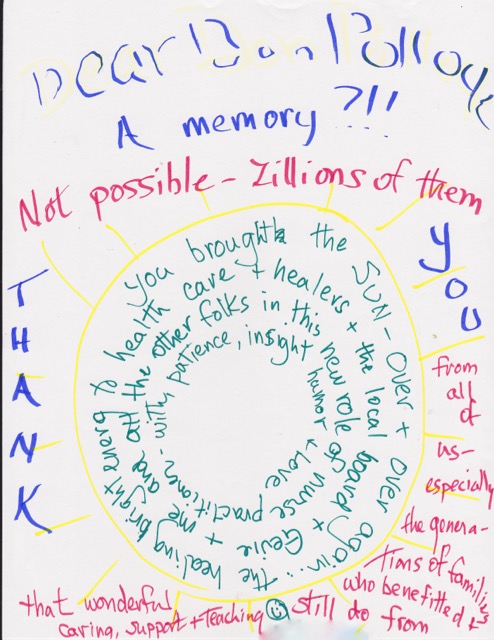 Dear Don Pollock
A memory?!!
Not possible – Zillions of them
THANK
YOU
You brought the SUN – over + over again... the healing bright energy to
health care + healers + the local board + Genie + me and all
the other folks in this new role of nurse practitioner - with
patience, insight humor + love
from
all
of
us–
especially
the genera-
tions of families
who benefitted +
still do from
that wonderful
caring, support + teaching ☺